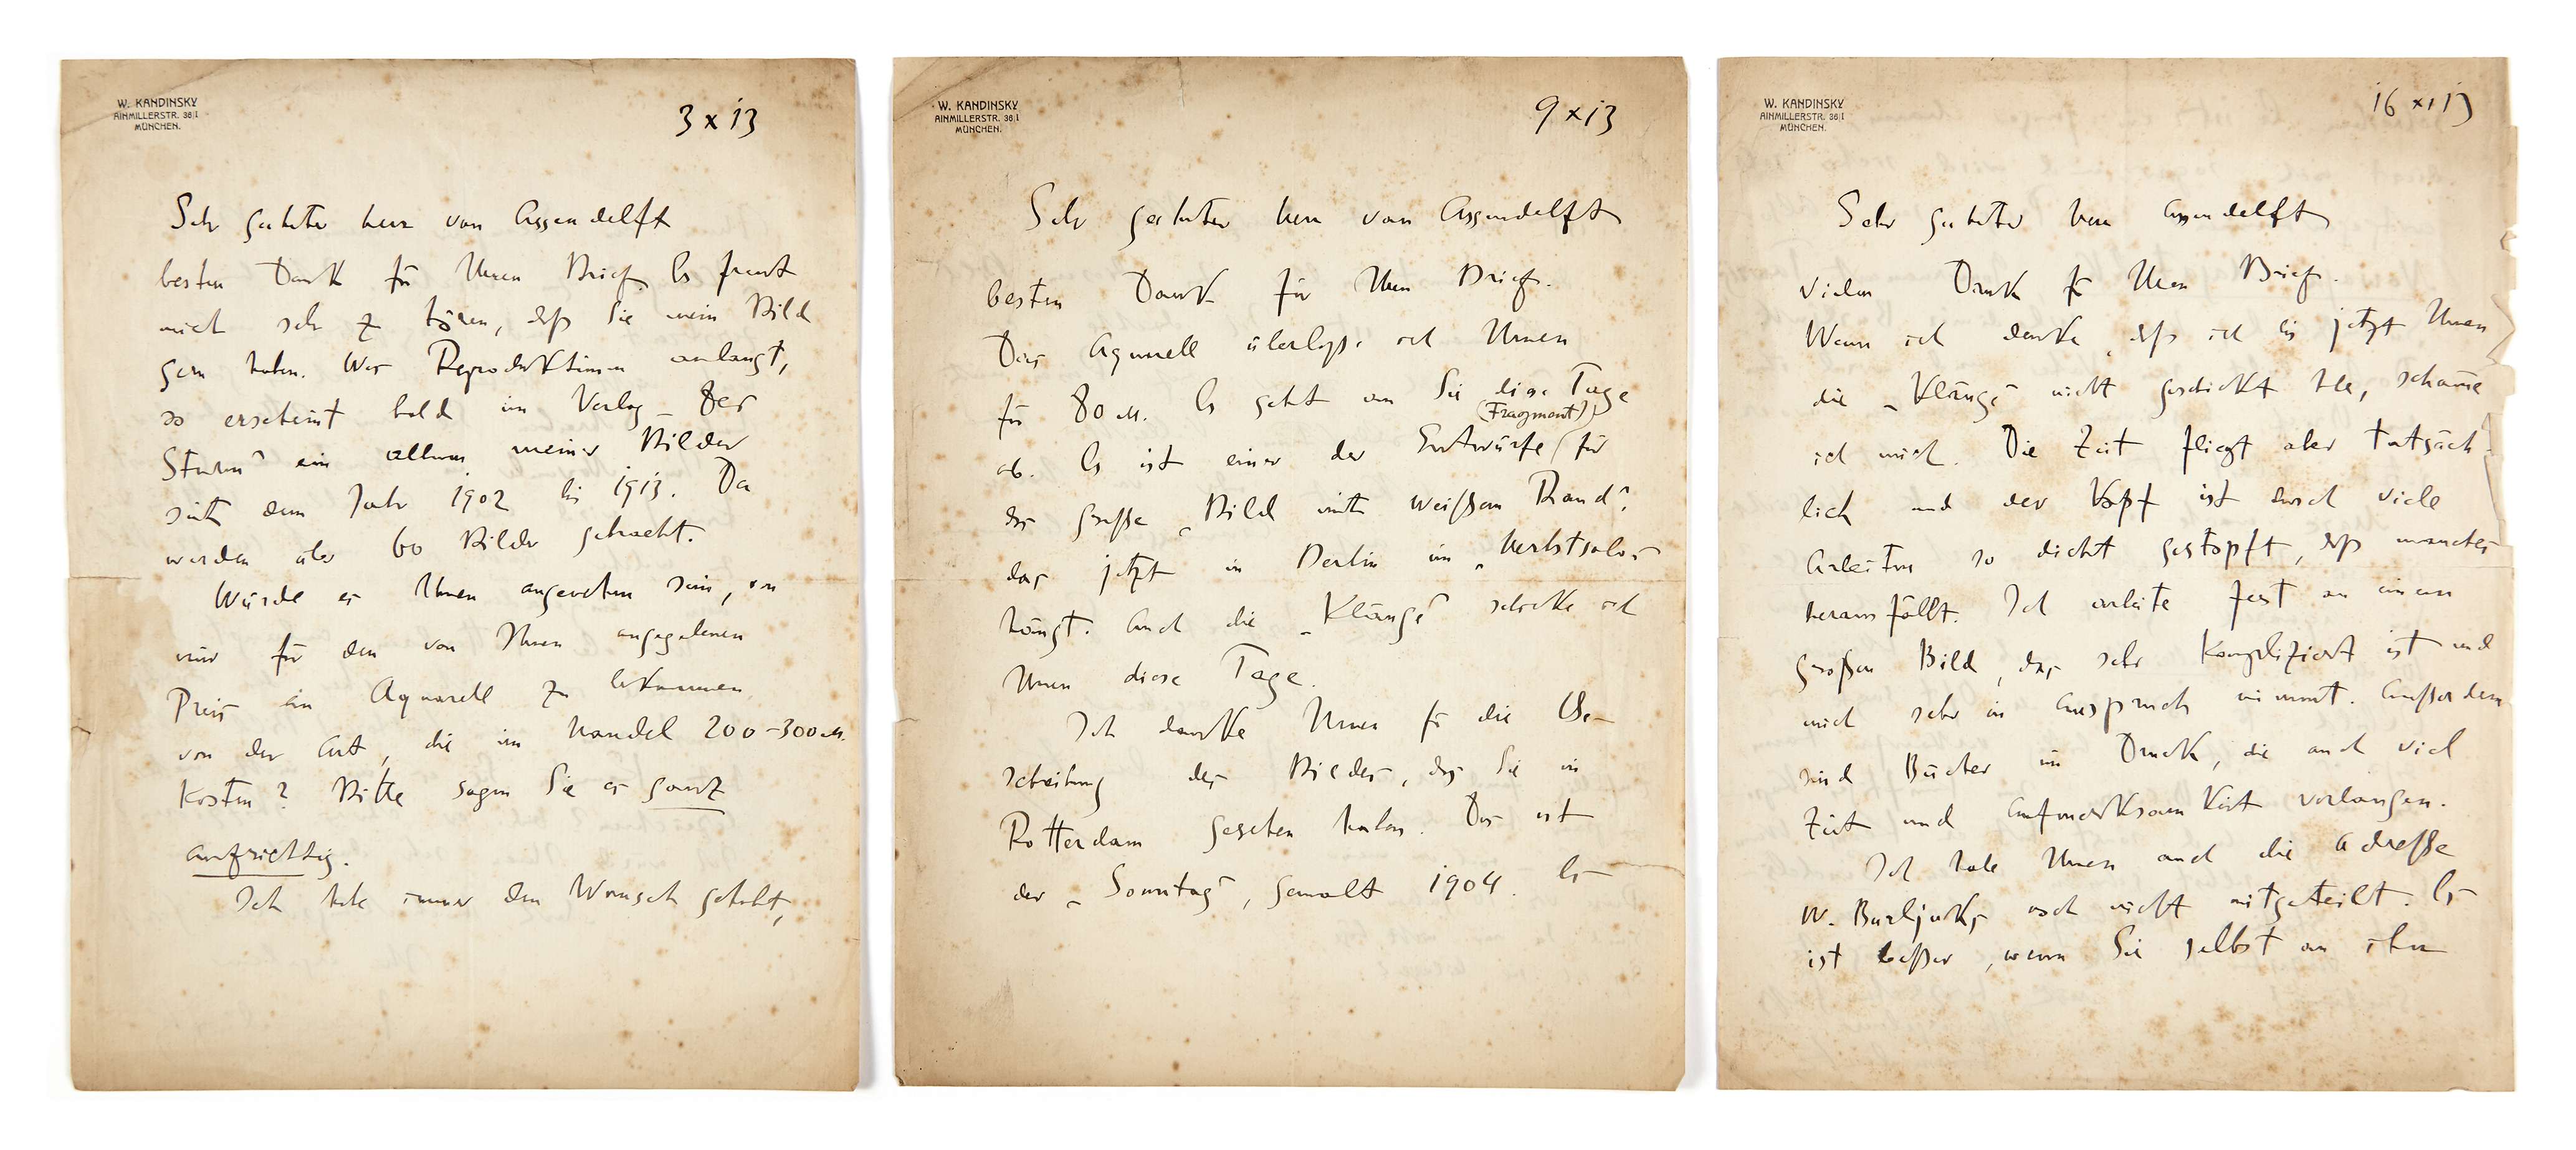 W. KANDINSKY
AINMILLERSTR. 36|I
MÜNCHEN.
3 x 13
Sehr geehrter Herr van Assendelft
besten Dank für Ihren Brief. Es freut
mich sehr zu hören, dass Sie mein Bild
gern haben. Was Reproduktionen anlangt,
so erscheint bald im Verlag „Der
Sturm“ ein Album meiner Bilder
seit dem Jahr 1902 bis 1913. Da
werden über 60 Bilder gebracht.
Würde es Ihnen angenehm sein, von
mir für den von Ihnen angegebenen
Preis ein Aquarell zu bekommen
von der Art, die im Handel 200–300 M.
kosten? Bitte sagen Sie es ganz
aufrichtig.
Ich habe immer den Wunsch gehabt,
W. KANDINSKY
AINMILLERSTR. 36|I
MÜNCHEN.
9 x 13
Sehr geehrter Herr van Assendelft
besten Dank für Ihren Brief.
Das Aquarell überlasse ich Ihnen
für 80 M. Es geht an Sie diese Tage
ab. Es ist einer der Entwürfe (Fragment) für
das große „Bild mit weißem Rand“,
das jetzt in Berlin im „Herbstsalon“
hängt. Auch die „Klänge“ schicke ich
Ihnen diese Tage.
Ich danke Ihnen für die Be-
schreibung des Bildes, das Sie in
Rotterdam gesehen haben. Das ist
der „Sonntag“, gemalt 1904. Es
W. KANDINSKY
AINMILLERSTR. 36|I
MÜNCHEN.
16 xi 13
Sehr geehrter Herr Assendelft
vielen Dank für Ihren Brief.
Wenn ich denke, dass ich bis jetzt Ihnen
die „Klänge“ nicht geschickt habe, schäme
ich mich. Die Zeit fliegt aber tatsäch-
lich und der Kopf ist durch viele
Arbeiten so dicht gestopft, dass manches
herausfällt. Ich arbeite fest an einem
großen Bild, das sehr kompliziert ist und
mich sehr in Anspruch nimmt. Außerdem
sind Bücher im Druck, die auch viel
Zeit und Aufmerksamkeit verlangen.
Ich habe Ihnen auch die Adresse
W. Burljuks noch nicht mitgeteilt. Es
ist besser, wenn Sie selbst an ihn